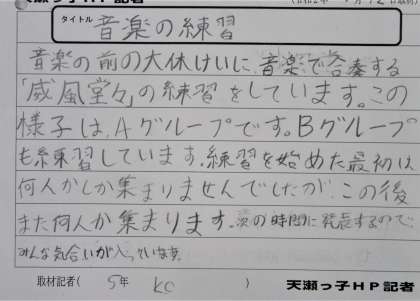 天瀬っ子HP記者
タイトル 音楽の練習
音楽の前の大休けいに、音楽で合奏する
「威風堂々」の練習をしています。この
様子は、Aグループです。Bグループ
も練習しています。練習を始めた最初は
何人かしか集まりませんでしたが、この後
また何人か集まります。次の時間に発表するので、
みんな気合いが入っています。
取材記者( 5年 KC ) 天瀬っ子HP記者